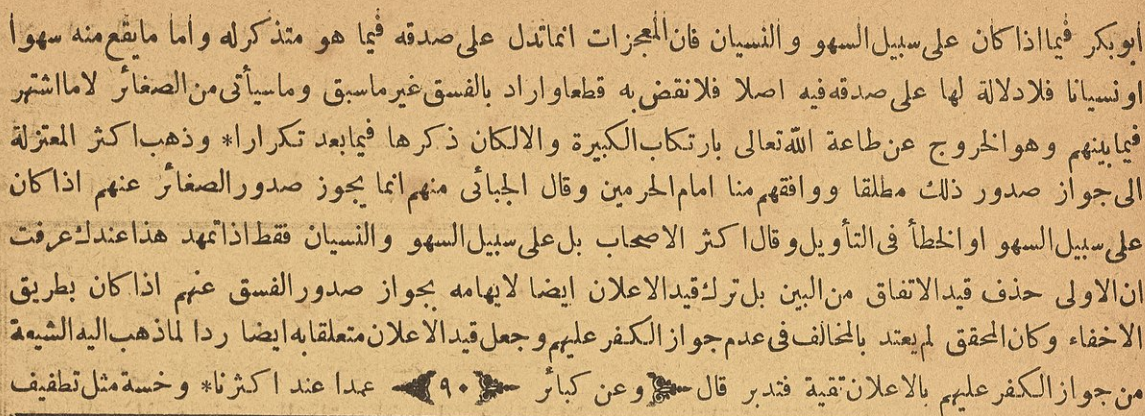 ابوبكر فيما اذا كان على سبيل السهو والنسيان فان المعجزات انما تدل على صدقه فيما هو متذكر له واما ما يقع منه سهوا
او نسيانا فلا دلالة لها على صدقه فيه اصلا فلا نقض به قطعا واراد بالفسق غير ما سبق وما سيأتى من الصغائر لا ما اشتهر
فيما بينهم وهو الخروج عن طاعة الله تعالى بارتكاب الكبيرة والا لكان ذكرها فيما بعد تكرارا * وذهب اكثر المعتزلة
الى جواز صدور ذلك مطلقا ووافقهم منا امام الحرمين وقال الجبائى منهم انما يجوز صدور الصغائر عنهم اذا كان
على سبيل السهو او الخطأ فى التأويل وقال اكثر الاصحاب بل على سبيل السهو والنسيان فقط اذا تمهد هذا عندك عرفت
ان الاولى حذف قيد الاتفاق من البين بل ترك قيد الاعلان ايضا لايهامه بجواز صدور الفسق عنهم اذا كان بطريق
الاخفاء وكان المحقق لم يعتد بالمخالف فى عدم جواز الكفر عليهم وجعل قيد الاعلان متعلقا به ايضا ردا لما ذهب اليه الشيعة
من جواز الكفر عليهم بالاعلان تقية فتدبر قال وعن كبائر ٩٠ عمدا عند اكثرنا * وخسة مثل تطفيف